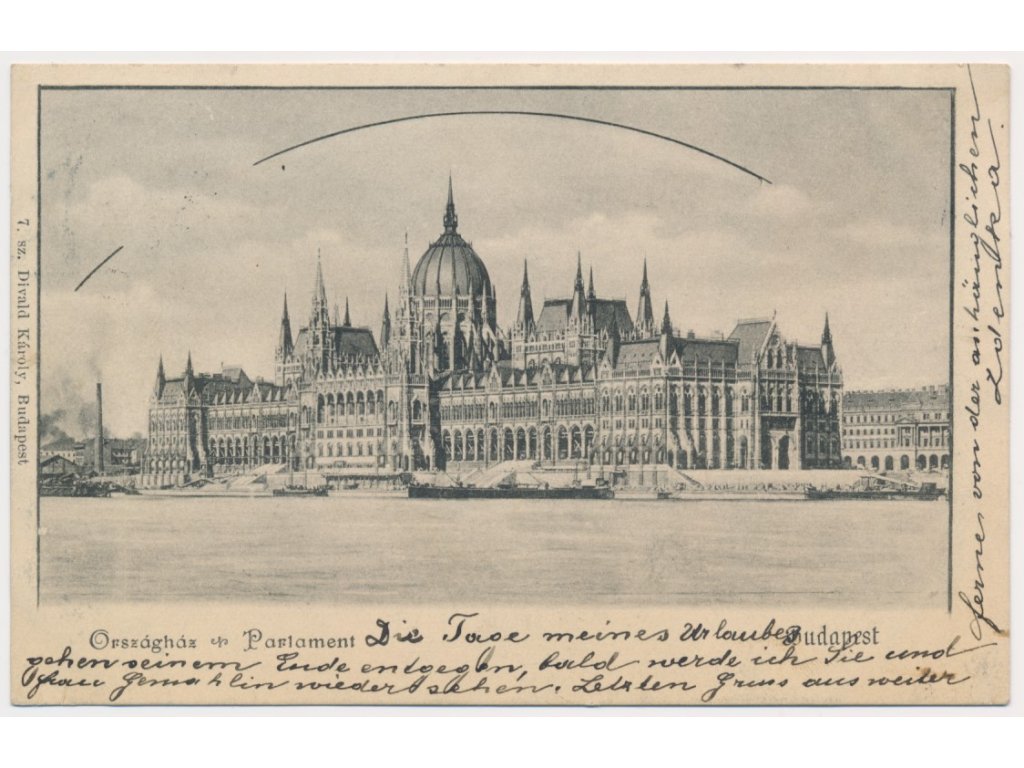 7. sz. Divald Károly, Budapest
Országház Parlament Budapest
Die Tage meines Urlaubes
gehen seinem Ende entgegen, bald werde ich Sie und
frau Gemahlin wiedersehen. Letzten Gruss aus weiter
ferne von der anhänglichen
Zdenka